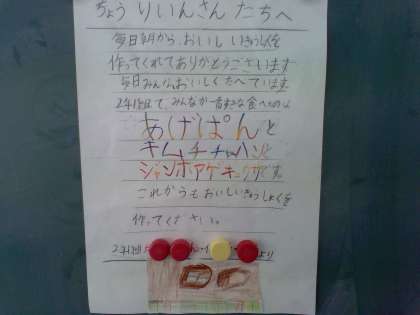 ちょうりいんさんたちへ
毎日朝から、おいしいきゅうしょくを
作ってくれてありがとうございます
毎日みんなおいしくたべています
2年1組で、みんなが一番すきな食べものは
あげぱんと
キムチチャハンと
ジャンボアゲギョウザです
これからもおいしいきゅうしょくを
作ってください。
2年1組 より